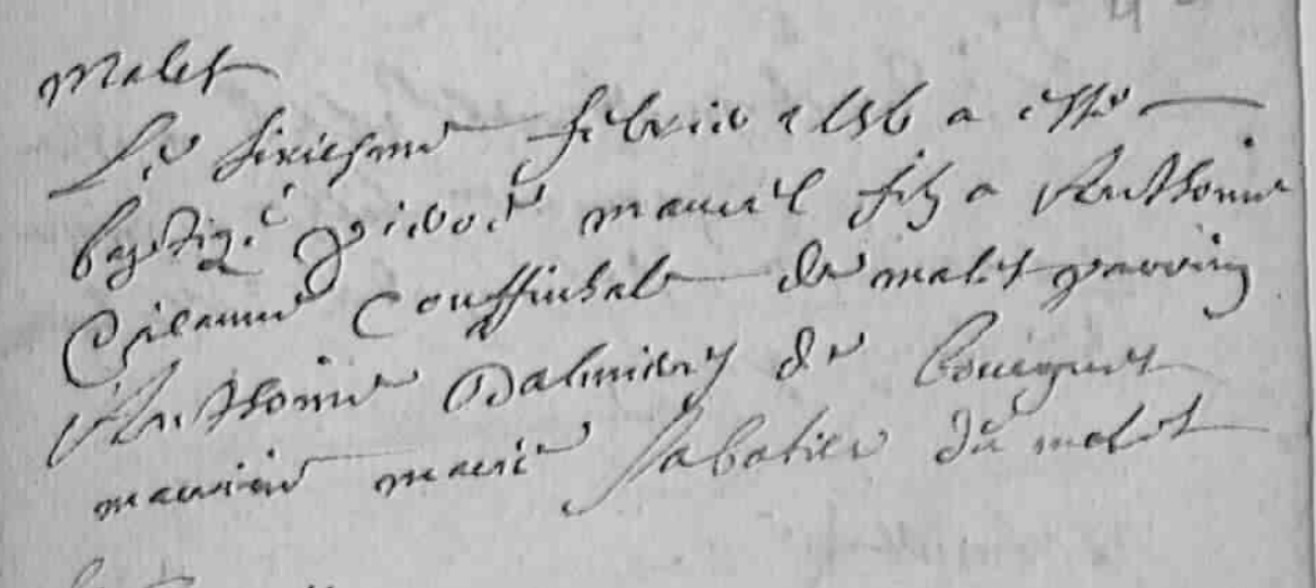 Malet
Le sixiesme febvrier 1656 a este
baptizé pierre maurel filz a Anthoine
et Jeanne Couffinhal de malet parrin
Anthoine Dalmiery de
marrine marie Sabatier du malet